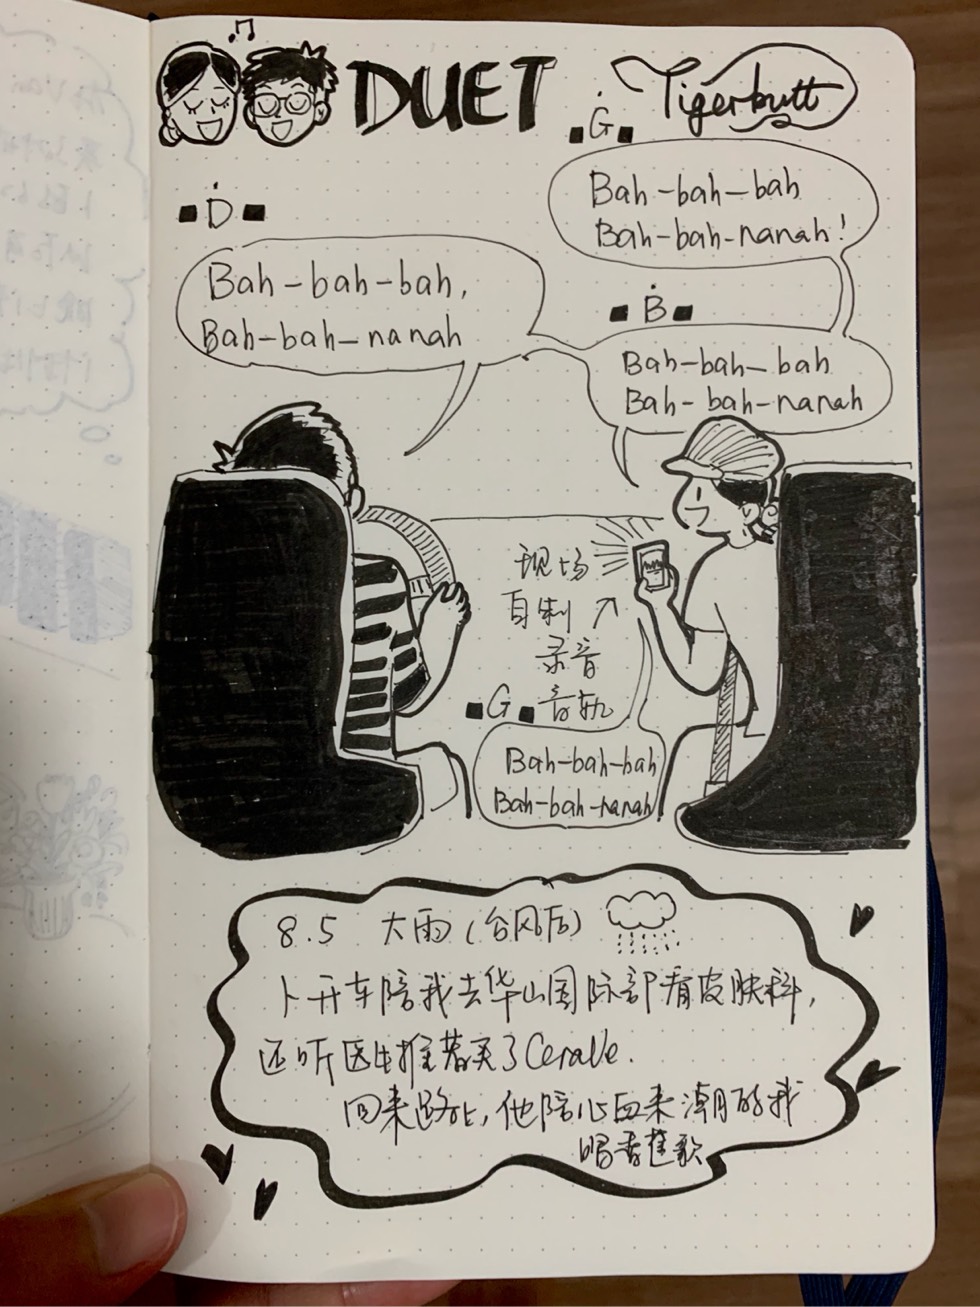 DUET
Tigerbutt
G
Bah-bah-bah
Bah-bah-nanah!
D
Bah-bah-bah,
Bah-bah-nanah
B
Bah-bah-bah
Bah-bah-nanah
现场
自制
录音
音轨
G
Bah-bah-bah
Bah-bah-nanah
8.5 大雨(台风后)
卜开车陪我去华山国际部看皮肤科,
还听医生推荐买了CeraVe.
回来路上,他陪心血来潮的我
唱香蕉歌